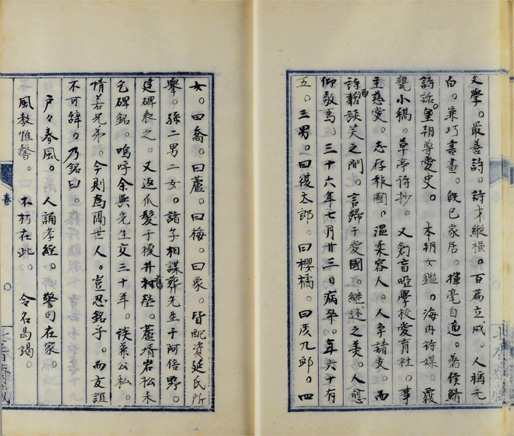 文學。最善詩。詩才縱橫。百篇立成。人稱元
白。兼巧書畫。既已家居。揮毫自適。著侯鯖
詩話。皇朝尊愛史。本朝女鑑。海内詩媒。
甕小稿。草亭詩抄。又創盲啞學校愛育社。事
主慈愛。志存報國。温柔容人。人爭請交。而
詩歌談笑之間。言歸于愛國。繼述之美。人愈
仰敬焉 三十六年七月廿三日病卒。年六十有
五。三男。曰復太郎。曰櫻橘。曰辰九郎。四
女。曰喬。曰蘆。曰梅。曰象。皆配資延氏所
擧。孫二男二女。諸子相謀葬先生于阿倍野。
建碑表之。又返爪髮于榎井村舊塋。蘆壻岩松
乞碑銘。嗚呼余與先生交三十年。談 公私。
情若兄弟。今則為隔世人。豈忍銘乎。而交誼
不可辭。乃銘曰。
戸々春風。人誦孝經。警句在家。
風教惟馨。不朽在此。令名曷竭。